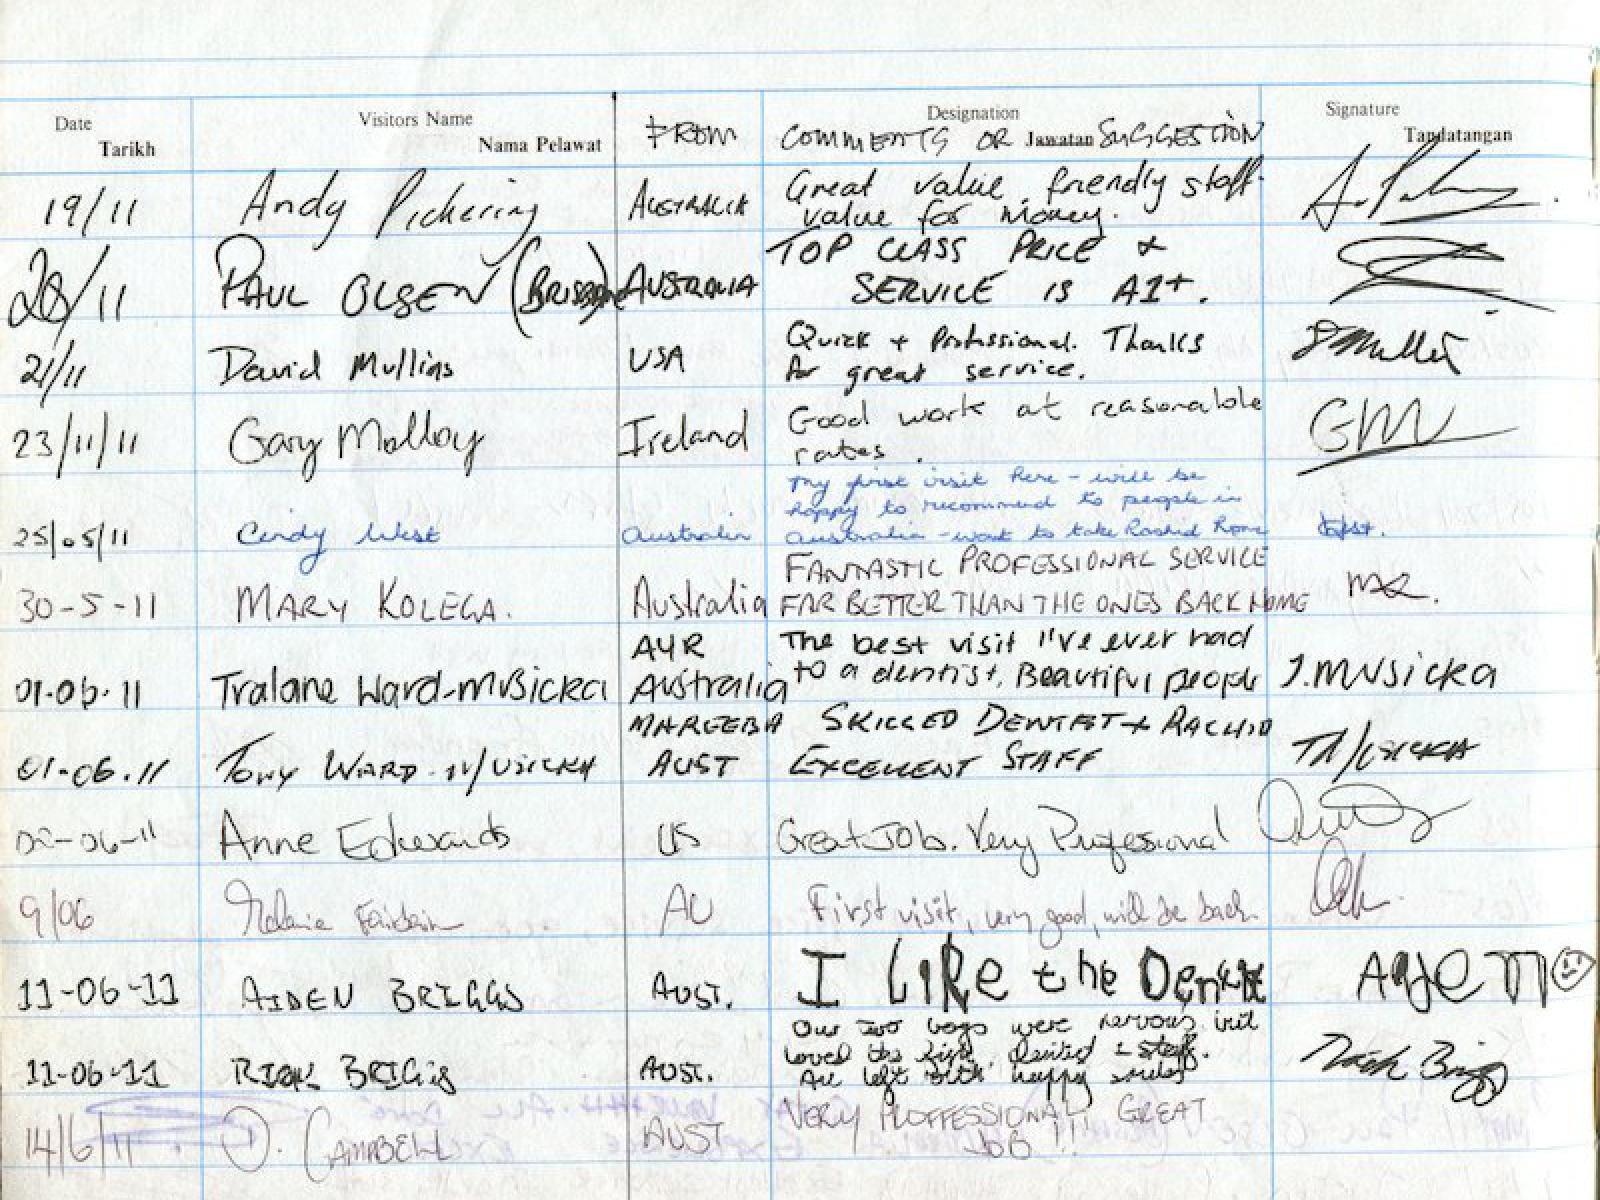 Date Visitors Name Designation Signature
Tarikh Nama Pelawat FROM COMMENTS OR Jawatan SUGGESTION Tandatangan
19/11 Andy Pickering AUSTRALIA Great value, friendly staff.
value for money.
20/11 PAUL OLSEN (BRISBANE) AUSTRALIA TOP CLASS PRICE +
SERVICE IS A1+.
21/11 David Mullins USA Quick + Professional. Thanks
for great service.
23/11/11 Gary Molloy Ireland Good work at reasonable
rates. GM
25/05/11 Cindy West Australia My first visit here - will be
happy to recommend to people in
Australia - want to take Rashid home
30-5-11 MARY KOLEGA. Australia FANTASTIC PROFESSIONAL SERVICE
FAR BETTER THAN THE ONES BACK HOME
01-06-11 Tralane Ward-Musicka AYR Australia The best visit I've ever had
to a dentist. Beautiful people J.Musicka
01-06.11 Tony WARD-MUSICKA MAREEBA AUST SKILLED DENTIST + RACHID
EXCELLENT STAFF
02-06-11 Anne Edwards US Great Job. Very Professional
9/06 AU First visit, very good, will be back
11-06-11 AIDEN BRIGGS AUST. I LIKe the Dentist
11-06-11 BRIGGS AUST. Our two boys were nervous but
loved the dentist & staff.
All left with happy smiles
14/6/11 D. CAMPBELL AUST VERY PROFFESSIONAL! GREAT
JOB !!!